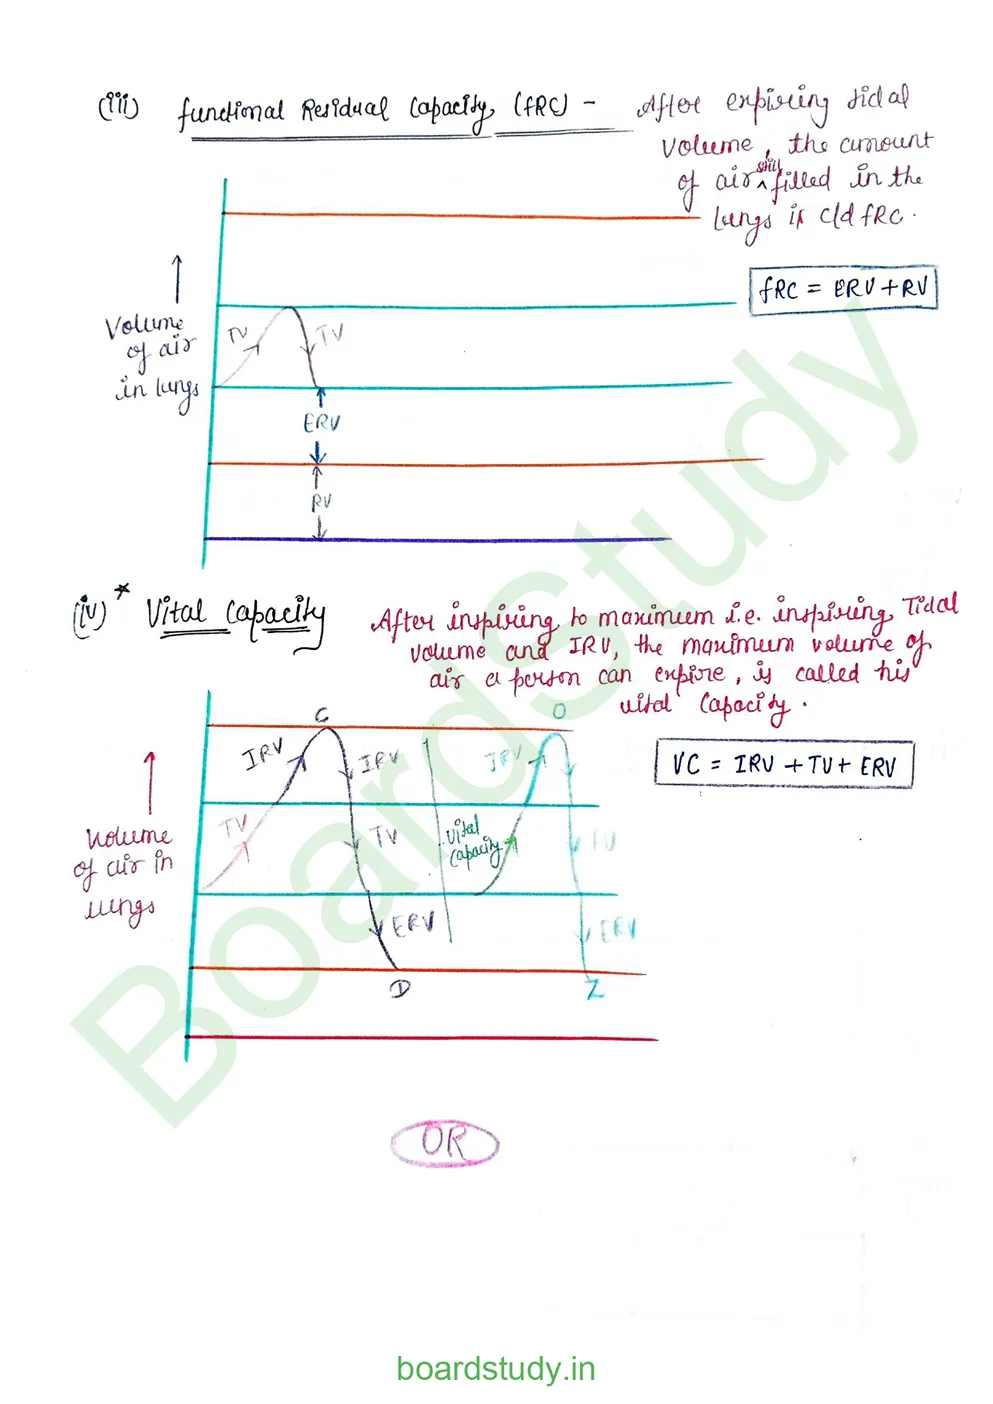 (iii) functional Residual Capacity (fRC) - After expiring tidal
volume, the amount
of air still filled in the
lungs is c/d fRC.
fRC = ERV + RV
Volume
of air
in lungs
TV
TV
ERV
RV
(iv) * Vital Capacity After inspiring to maximum i.e. inspiring Tidal
volume and IRV, the maximum volume of
air a person can expire, is called his
vital Capacity.
VC = IRV + TV + ERV
Volume
of air in
lungs
C
O
IRV
IRV
IRV
TV
TV
Vital
Capacity
TV
ERV
ERV
D
Z
OR
BoardStudy
boardstudy.in